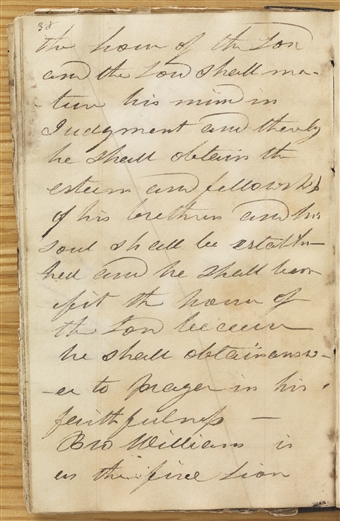 38
the hous of the Lord
and the Lord shall ma-
-ture his mind in
Judgment and thereby
he shall obtain the
esteem and fellowship
of his brethren and his
soul shall be establis-
hed and he shall ben-
-efit the hous of
the Lord because
he shall obtain answ-
-er to prayer in his
faithfulness —
Bro William is
as the fire Lion